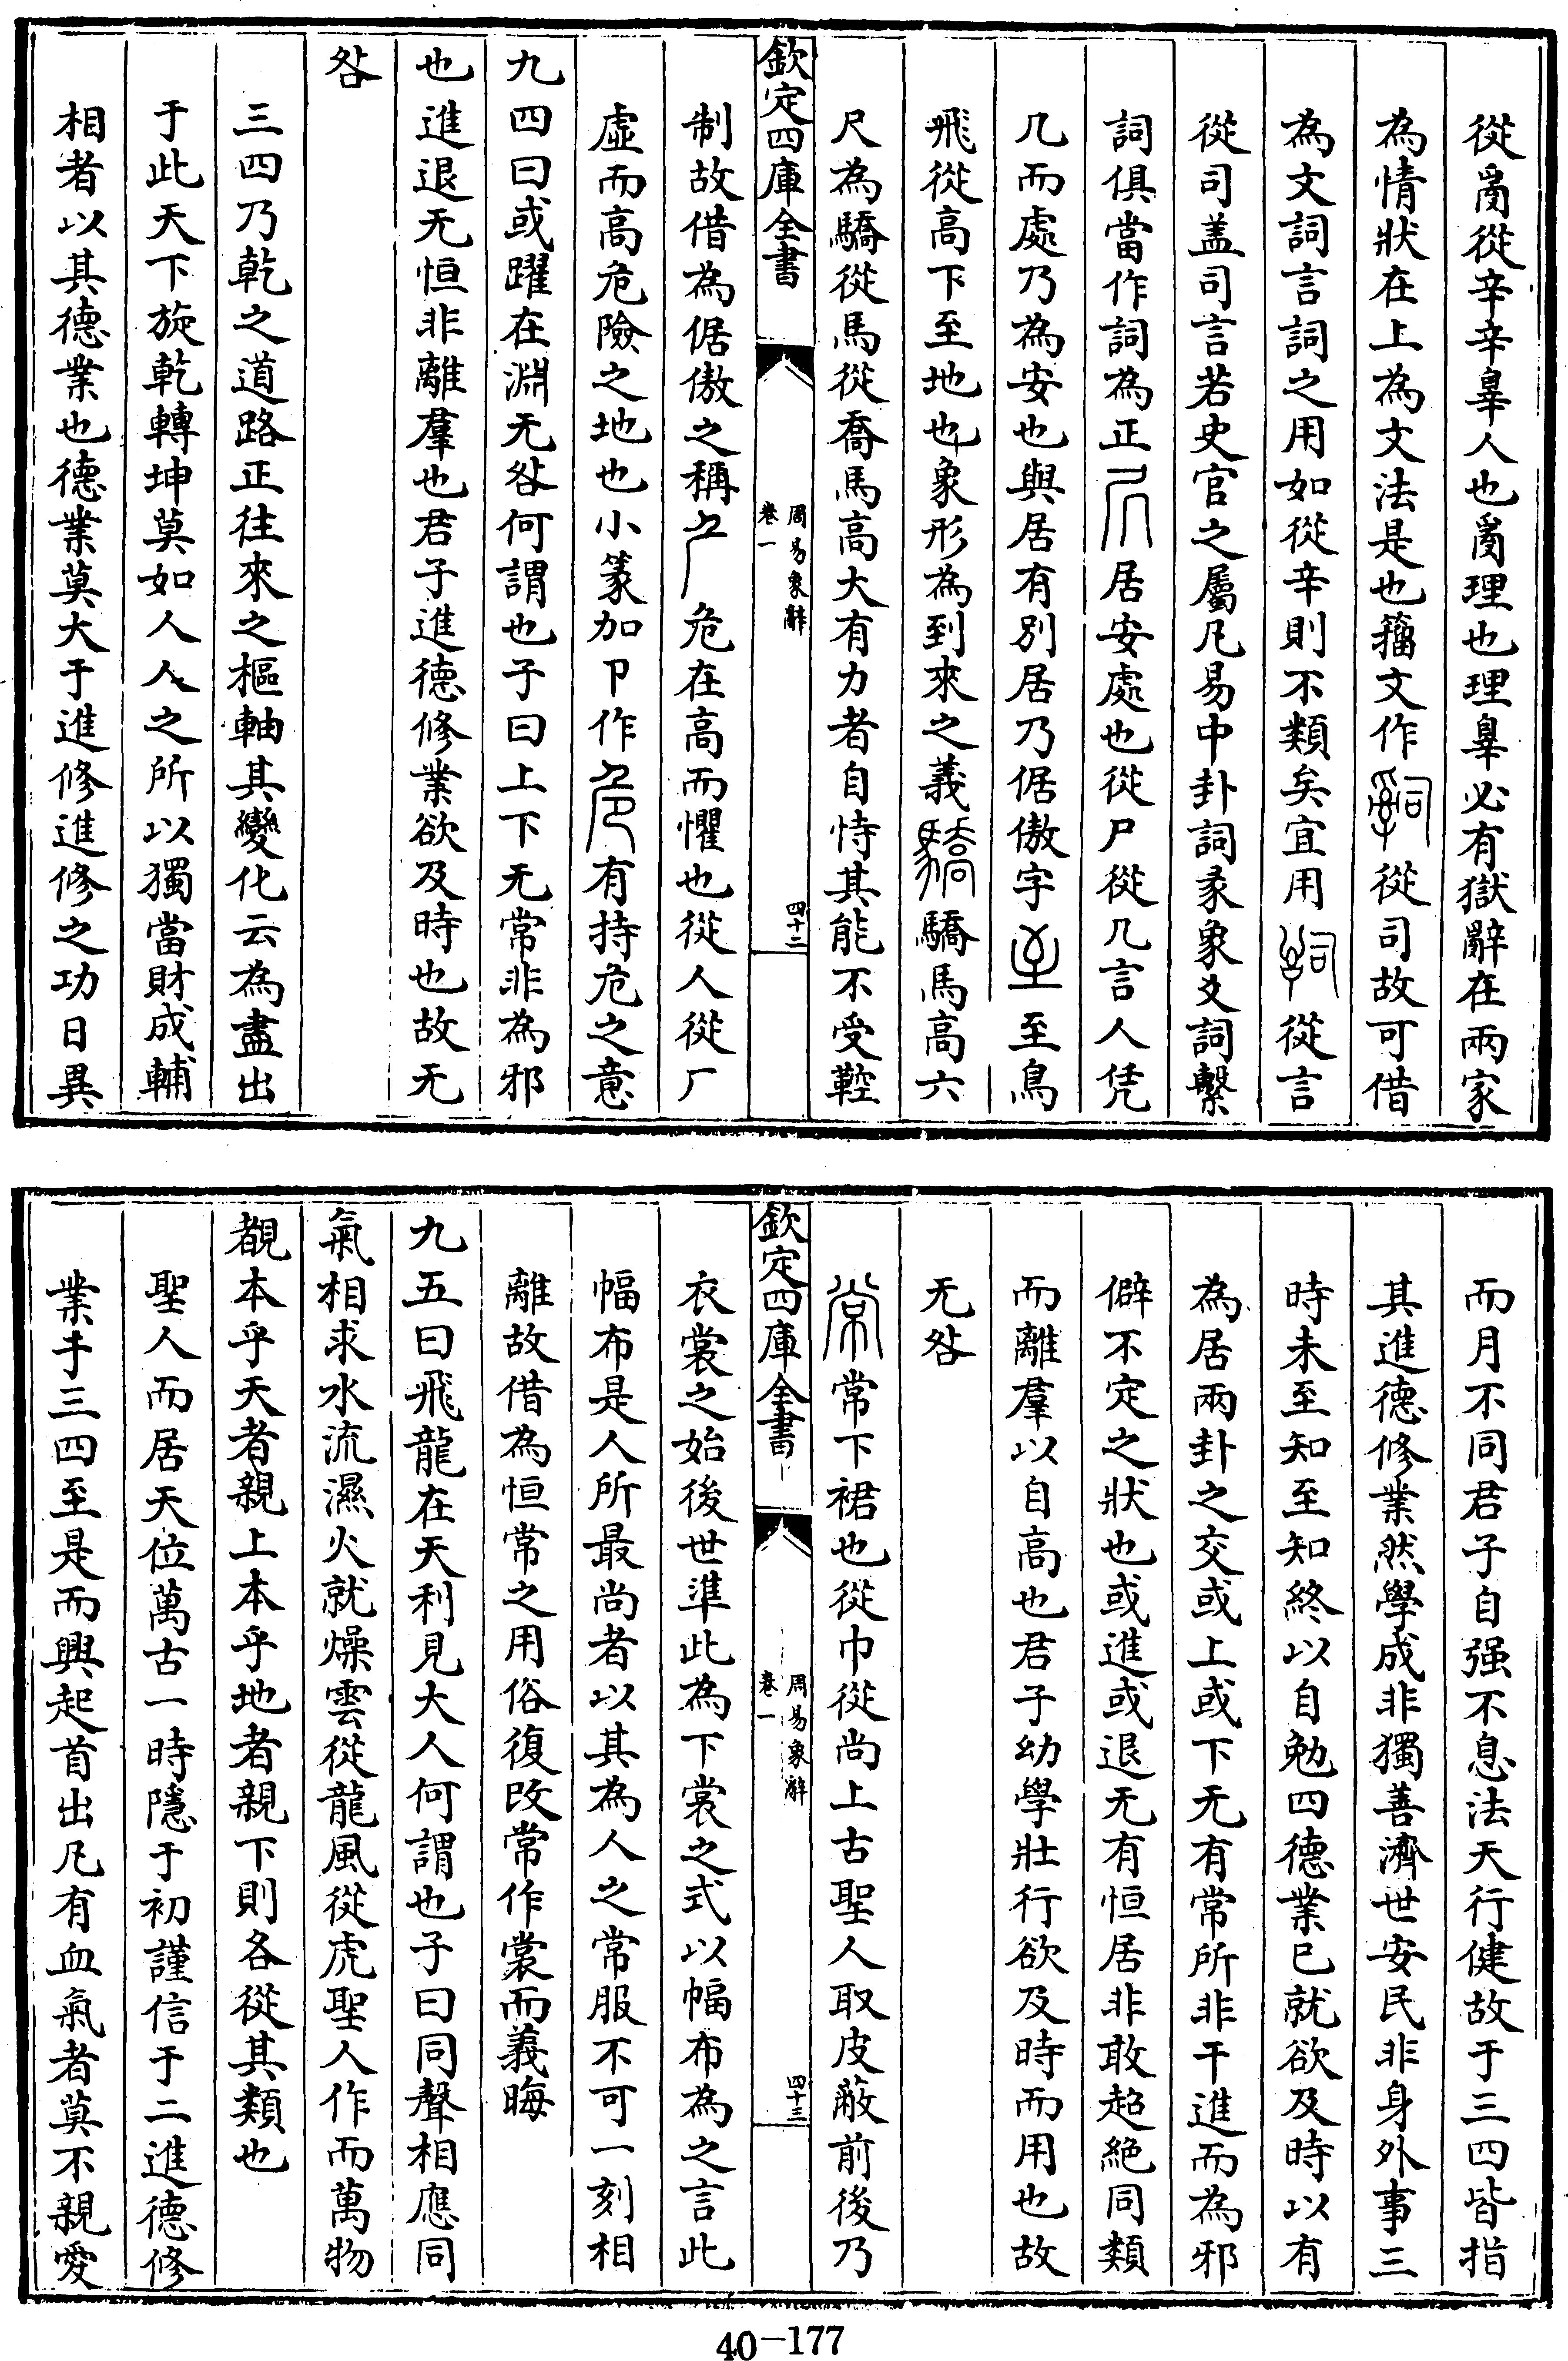 從𤔔從辛辛辠人也𤔔理也理辠必有獄辭在兩家
為情狀在上為文法是也籀文作從司故可借
為文詞言詞之用如從辛則不類矣宜用從言
從司盖司言若史官之屬凡易中卦詞彖象爻詞繫
詞俱當作詞為正居安處也從尸從几言人凭
几而處乃為安也與居有別居乃倨傲字至鳥
飛從高下至地也象形為到來之義驕馬高六
尺為驕從馬從喬馬高大有力者自恃其能不受鞚
欽定四庫全書
周易象辭
卷一
四十二
制故借為倨傲之稱危在高而懼也從人從厂
虛而高危險之地也小篆加卩作有持危之意
九四曰或躍在淵无咎何謂也子曰上下无常非為邪
也進退无恒非離羣也君子進德修業欲及時也故无
咎
三四乃乾之道路正往來之樞軸其變化云為盡出
于此天下旋乾轉坤莫如人人之所以獨當財成輔
相者以其德業也德業莫大于進修進修之功日異
而月不同君子自强不息法天行健故于三四皆指
其進德修業然學成非獨善濟世安民非身外事三
時未至知至知終以自勉四德業已就欲及時以有
為居兩卦之交或上或下无有常所非干進而為邪
僻不定之狀也或進或退无有恒居非敢超絶同類
而離羣以自高也君子幼學壯行欲及時而用也故
无咎
常下裙也從巾從尚上古聖人取皮蔽前後乃
欽定四庫全書
周易象辭
卷一
四十三
衣裳之始後世準此為下裳之式以幅布為之言此
幅布是人所最尚者以其為人之常服不可一刻相
離故借為恒常之用俗復改常作裳而義晦
九五曰飛龍在天利見大人何謂也子曰同聲相應同
氣相求水流濕火就燥雲從龍風從虎聖人作而萬物
覩本乎天者親上本乎地者親下則各從其類也
聖人而居天位萬古一時隱于初謹信于二進德修
業于三四至是而興起首出凡有血氣者莫不親愛
40-177